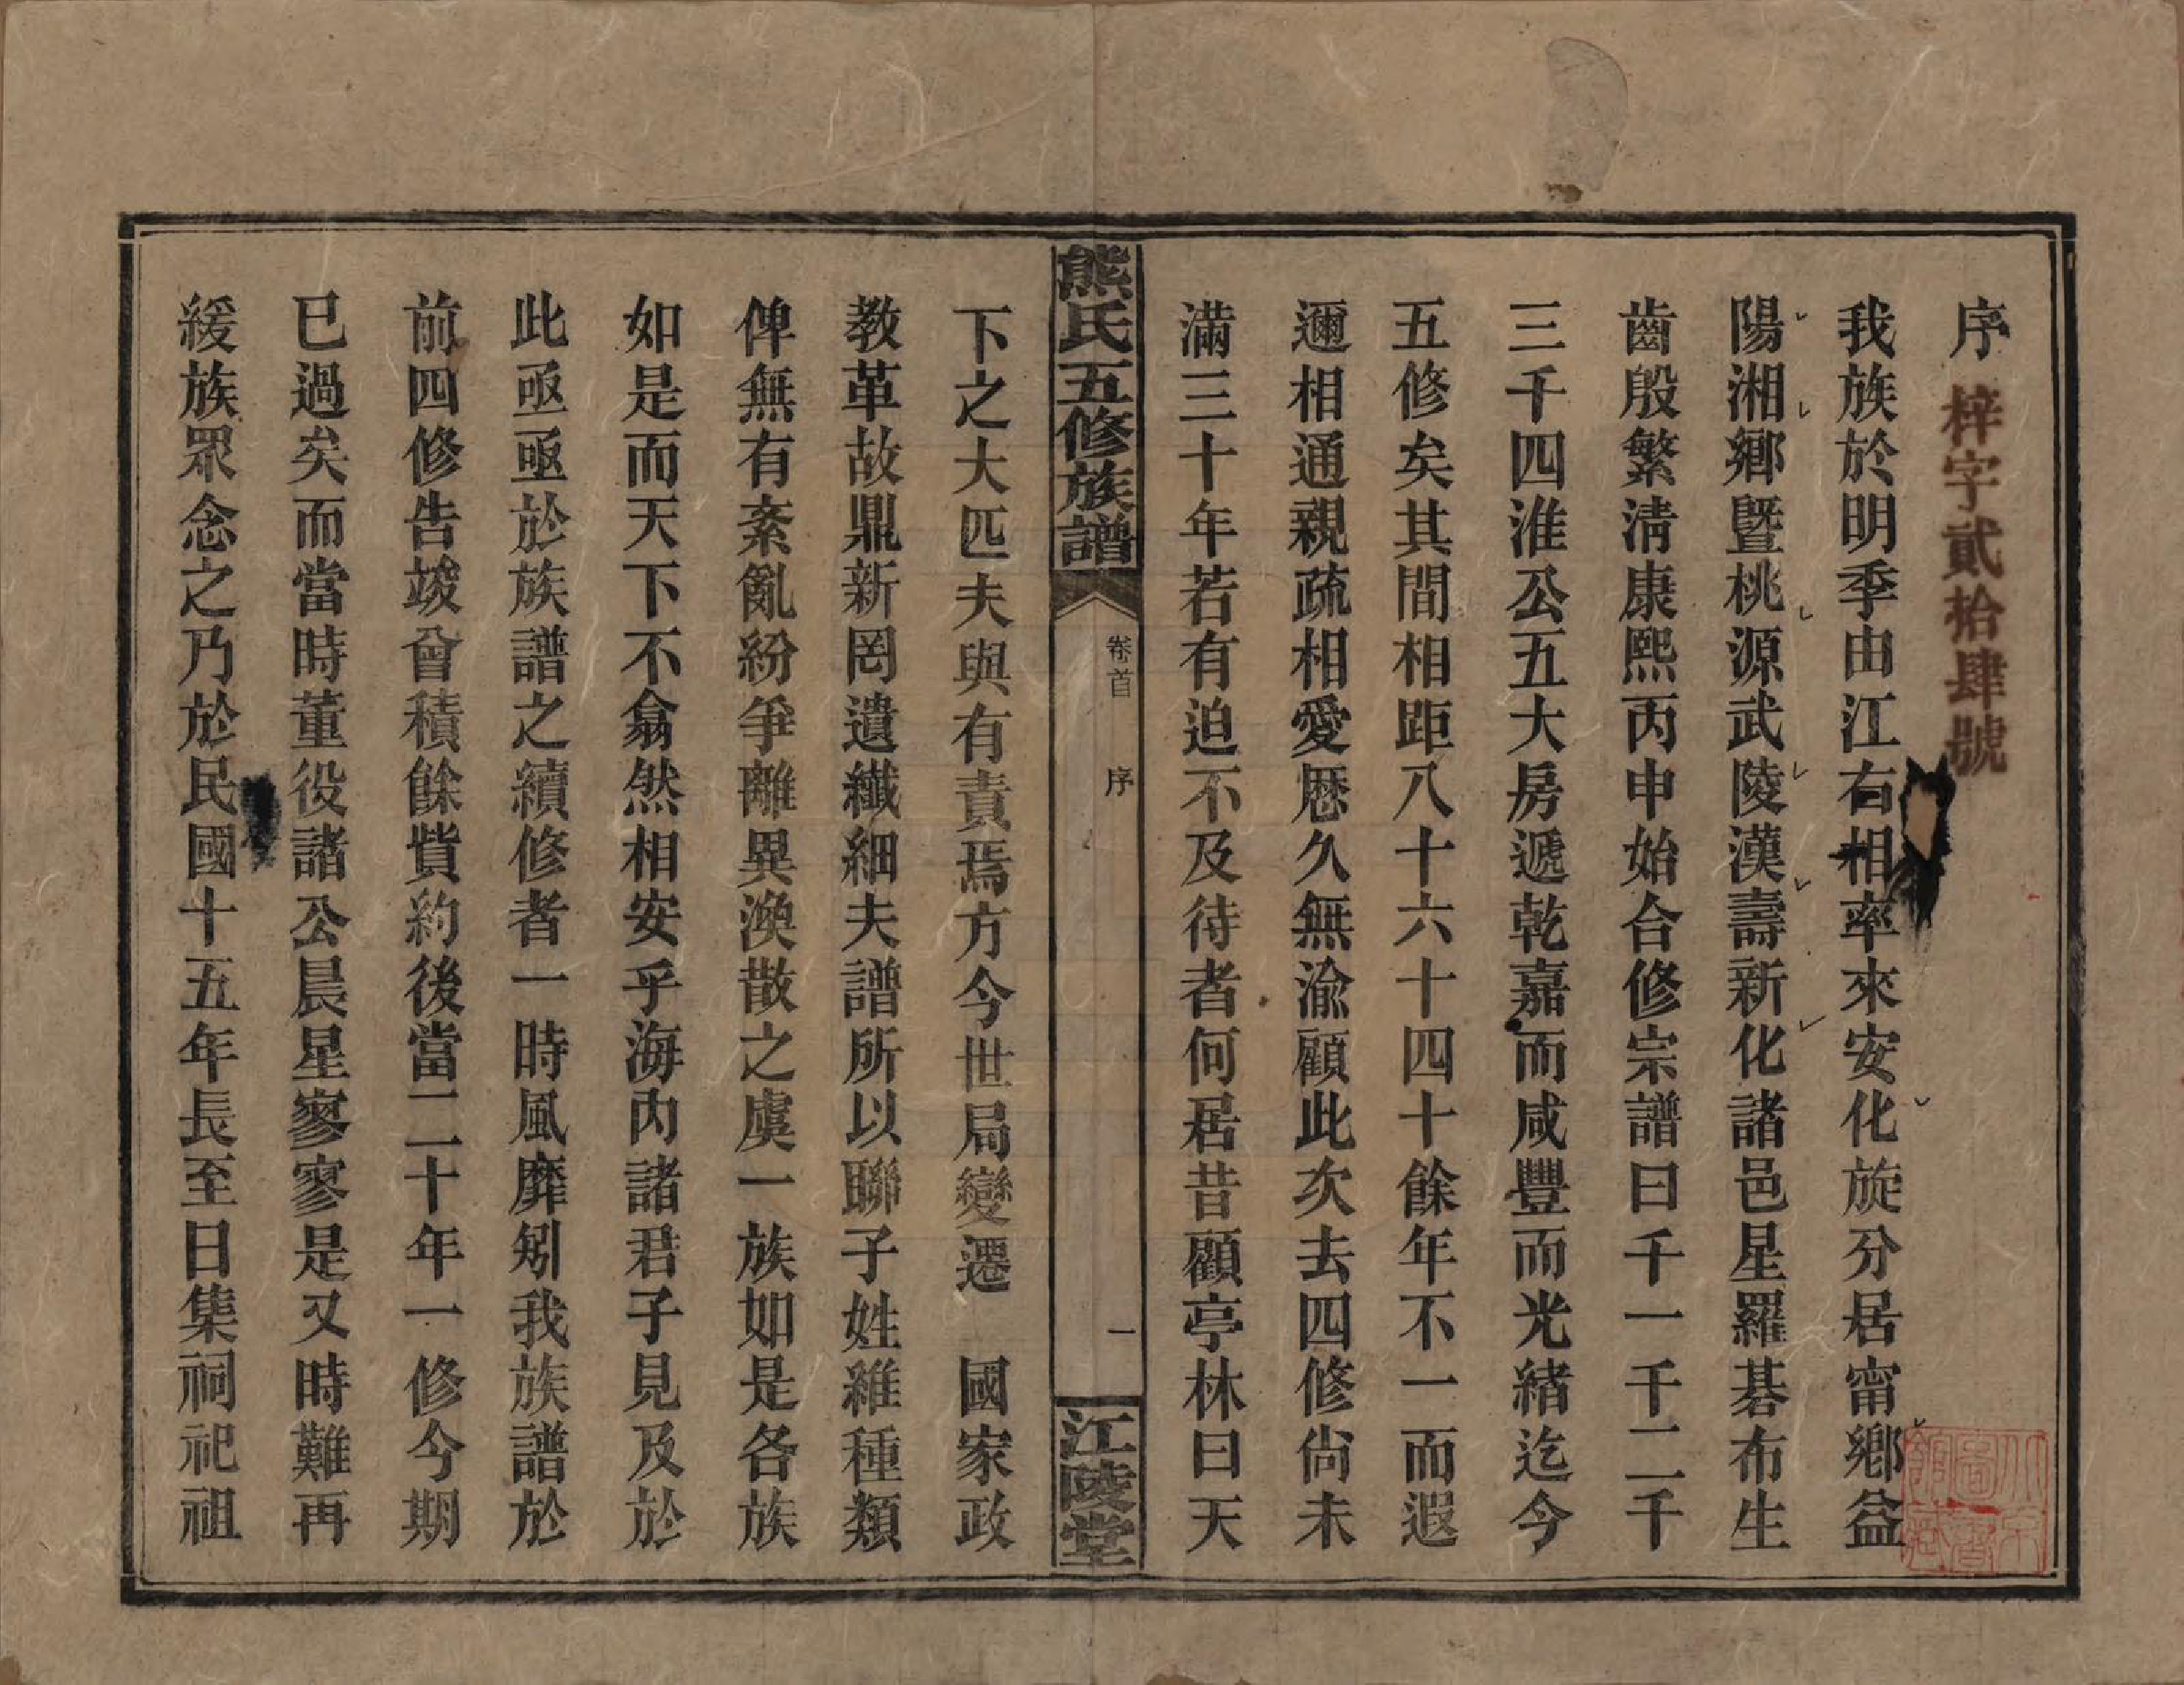 序
梓字貳拾肆號
我族於明季由江右相率來安化旋分居甯鄉益
陽湘鄉暨桃源武陵漢壽新化諸邑星羅碁布生
齒殷繁淸康熙丙申始合修宗譜曰千一千二千
三千四淮公五大房遞乾嘉而咸豐而光緒迄今
五修矣其間相距八十六十四十餘年不一而遐
邇相通親疏相愛歷久無渝顧此次去四修尙未
滿三十年若有迫不及待者何居昔顧亭林曰天
熊氏五修族譜
卷首
序
一
江陵堂
下之大匹夫與有責焉方今世局變遷 國家政
教革故鼎新罔遺纖細夫譜所以聯子姓維種類
俾無有紊亂紛爭離異渙散之虞一族如是各族
如是而天下不翕然相安乎海內諸君子見及於
此亟亟於族譜之續修者一時風靡矧我族譜於
前四修告竣曾積餘貲約後當二十年一修今期
已過矣而當時董役諸公晨星寥寥是又時難再
緩族眾念之乃於民國十五年長至日集祠祀祖